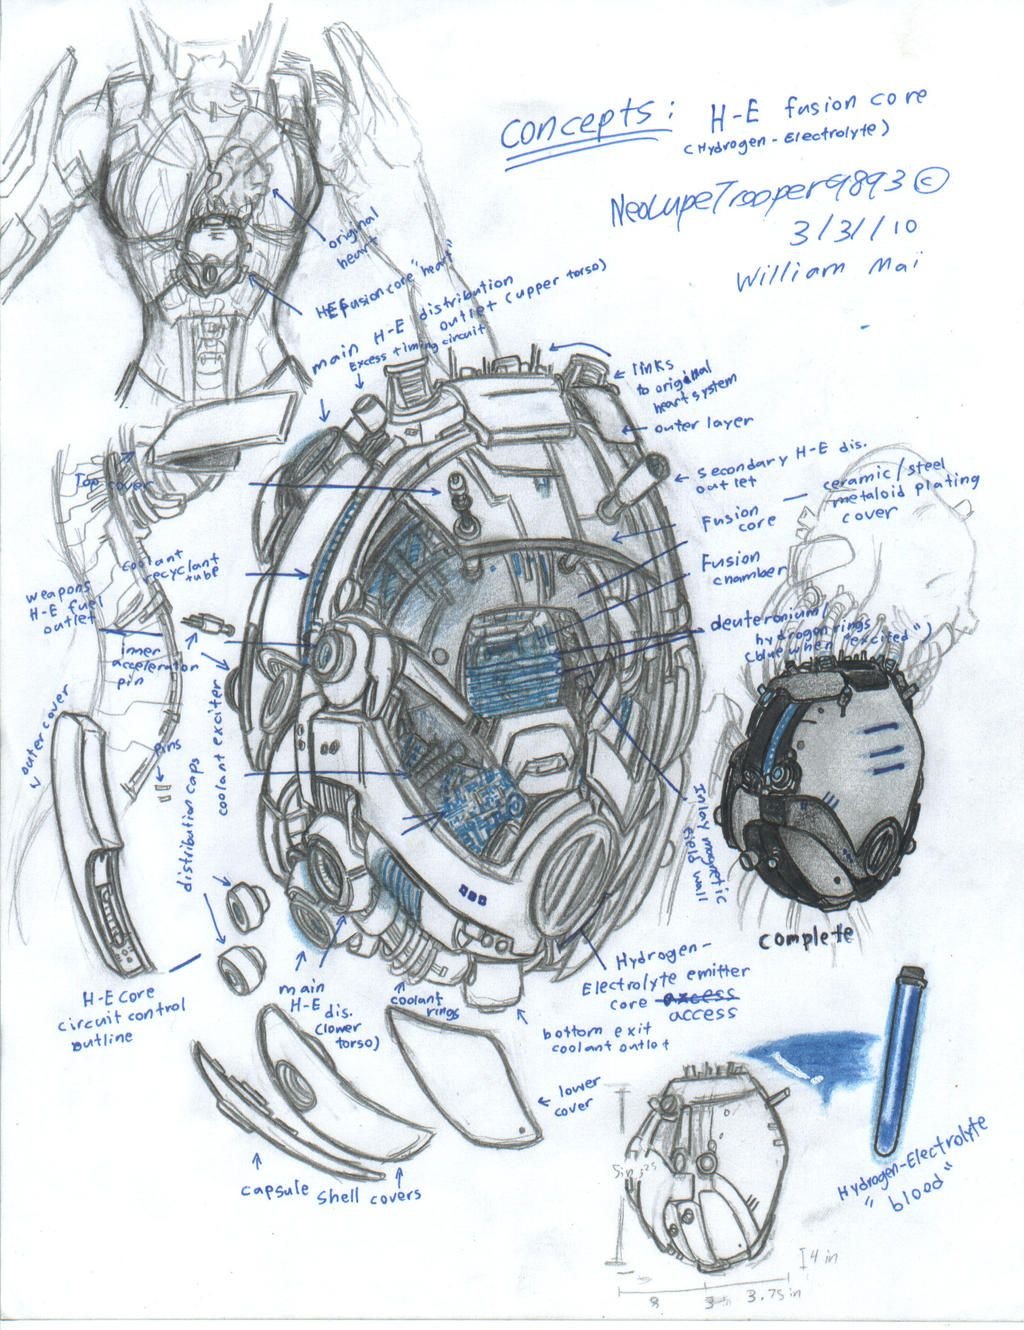 concepts: H-E fusion core
(Hydrogen-Electrolyte)
NeoLupeTrooper9893 ©
3/31/10
William Mai
original
heart
HEfusion core "heart"
main H-E distribution
outlet (upper torso)
Excess timing circuit
links
to original
heart system
outer layer
secondary H-E dis.
outlet
ceramic/steel
metaloid plating
cover
Fusion
core
Fusion
chamber
deuteronium/
hydrogon rings
(blue when "excited")
Top cover
coolant
recyclant
tube
weapons
H-E fuel
outlet
inner
acceleration
pin
outer cover
pins
distribution caps
coolant exciter
Inlay magnetic
field wall
complete
H-E core
circuit control
outline
main
H-E
dis.
(lower
torso)
coolant
rings
Hydrogen-
Electrolyte emitter
core access
access
bottom exit
coolant outlet
lower
cover
capsule shell covers
Hydrogen-Electrolyte
"blood"
4 in
8
3.75in